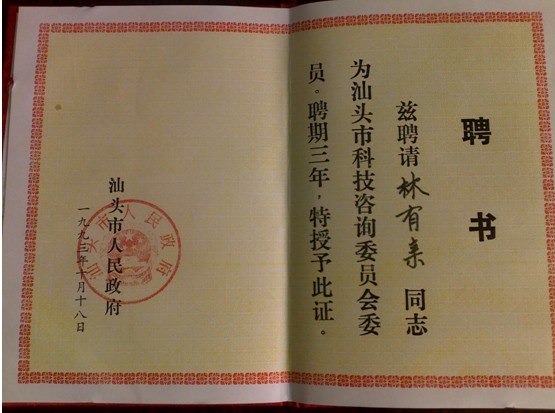 聘书
兹聘请林有来同志
为汕头市科技咨询委员会委
员。聘期三年,特授予此证。
汕头市人民政府
一九九三年十月十八日
汕头市人民政府